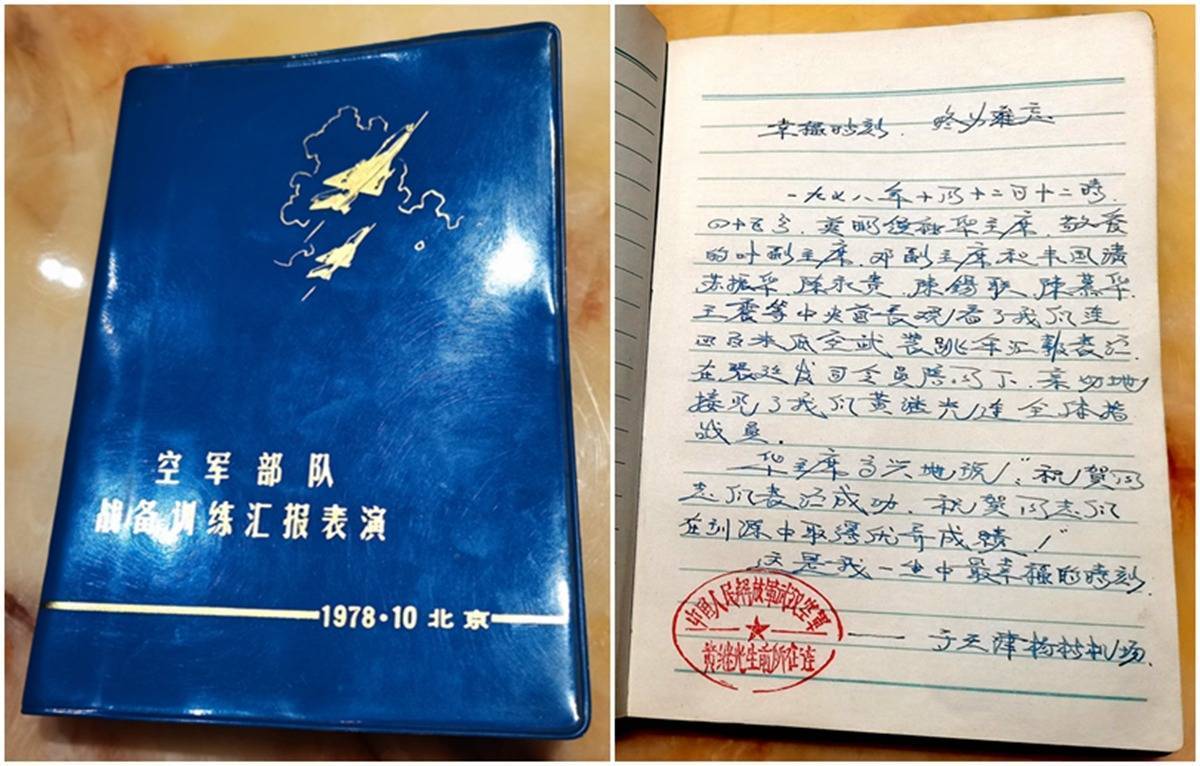 空军部队
战备训练汇报表演
1978·10北京
幸福时刻．终身难忘
一九七八年十月十二日十二时
四十五分．英明领袖华主席．敬爱
的叶副主席．邓副主席和韦国清
苏振华．陈永贵．陈锡联．陈慕华．
王震等中央首长观看了我们连
百米低空武装跳伞汇报表演．
在张廷发司令员陪同下．亲切地
接见了我们黄继光连全体指
战员．
华主席高兴地说：“祝贺同
志们表演成功．祝贺同志们
在训练中取得优异成绩！”
这是我一生中最幸福的时刻．
中国人民解放军武汉空军
黄继光生前所在连
——于天津杨村机场．